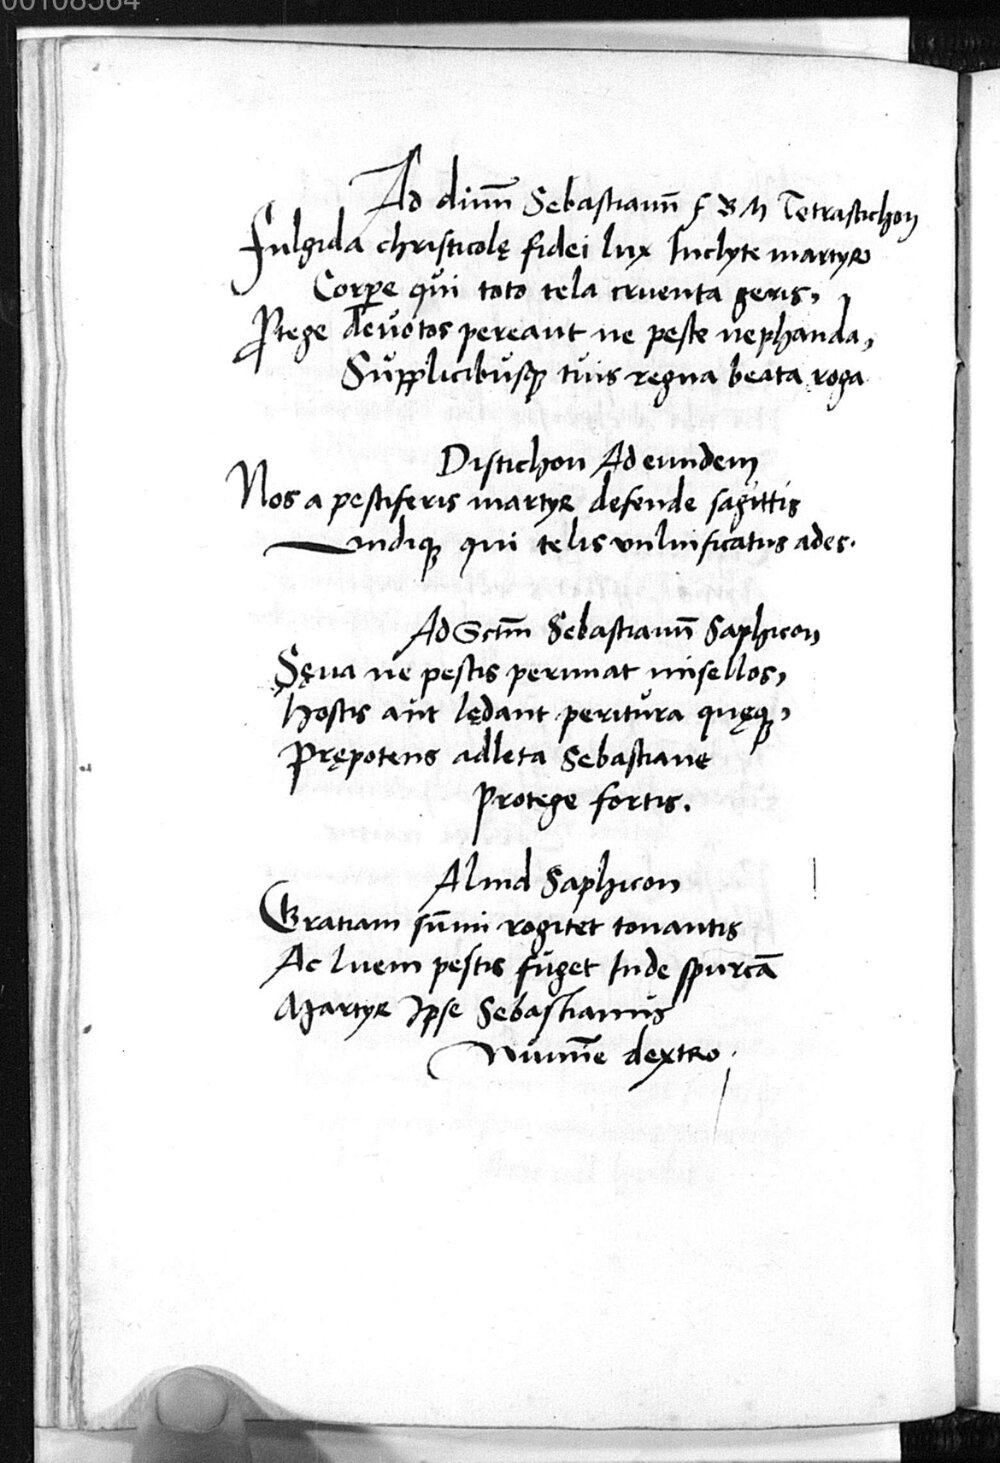 00108564
Ad diuū Sebastianū f B M Tetrastichon
Fulgida christicolę fidei lux Inclyte martyr
Corꝑe qui toto tela cruenta geris,
Ꝓtege deuotos pereant ne peste nephanda,
Supplicibusqꝫ tuis regna beata roga
Distichon Ad eundem
Nos a pestiferis martyr defende sagittis
Vndiqꝫ qui telis vulnificatus ades.
Ad Sctm̄ Sebastianū Saphicon
Sęua ne pestis perimat misellos,
Hostis aut lędant peritura quęqꝫ,
Prępotens adleta Sebastiane
Protege fortis.
Aliud Saphicon
Gratiam sūmi rogitet tonantis
Ac luem pestis fuget Inde spurcā
Martyr Ipse Sebastianus
Numīe dextro.